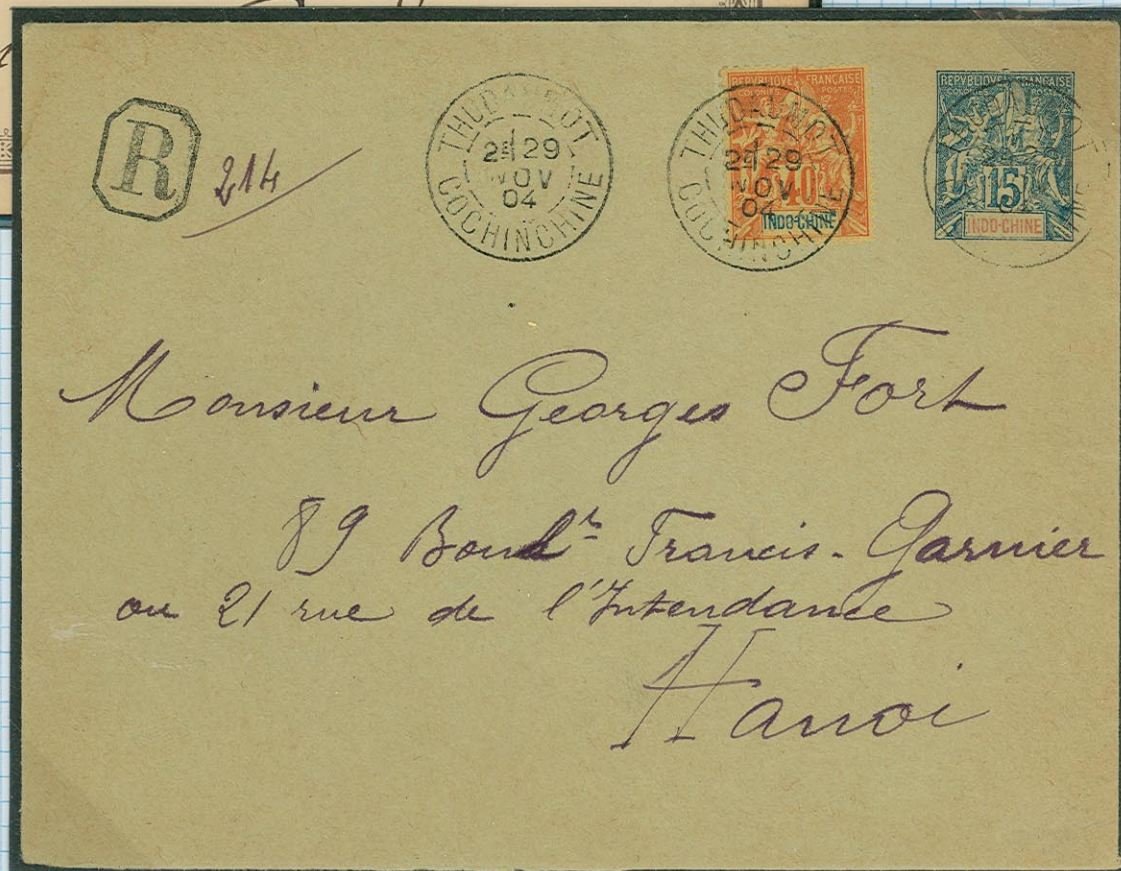 R
214
THUDAUMOT
2E 29
NOV
04
COCHINCHINE
THUDAUMOT
2E 29
NOV
04
COCHINCHINE
REPUBLIQUE FRANÇAISE
COLONIES POSTES
40
INDO-CHINE
REPUBLIQUE FRANÇAISE
COLONIES POSTES
15
INDO-CHINE
Monsieur Georges Fort
89 Boulr Francis-Garnier
ou 21 rue de l'Intendance
Hanoi